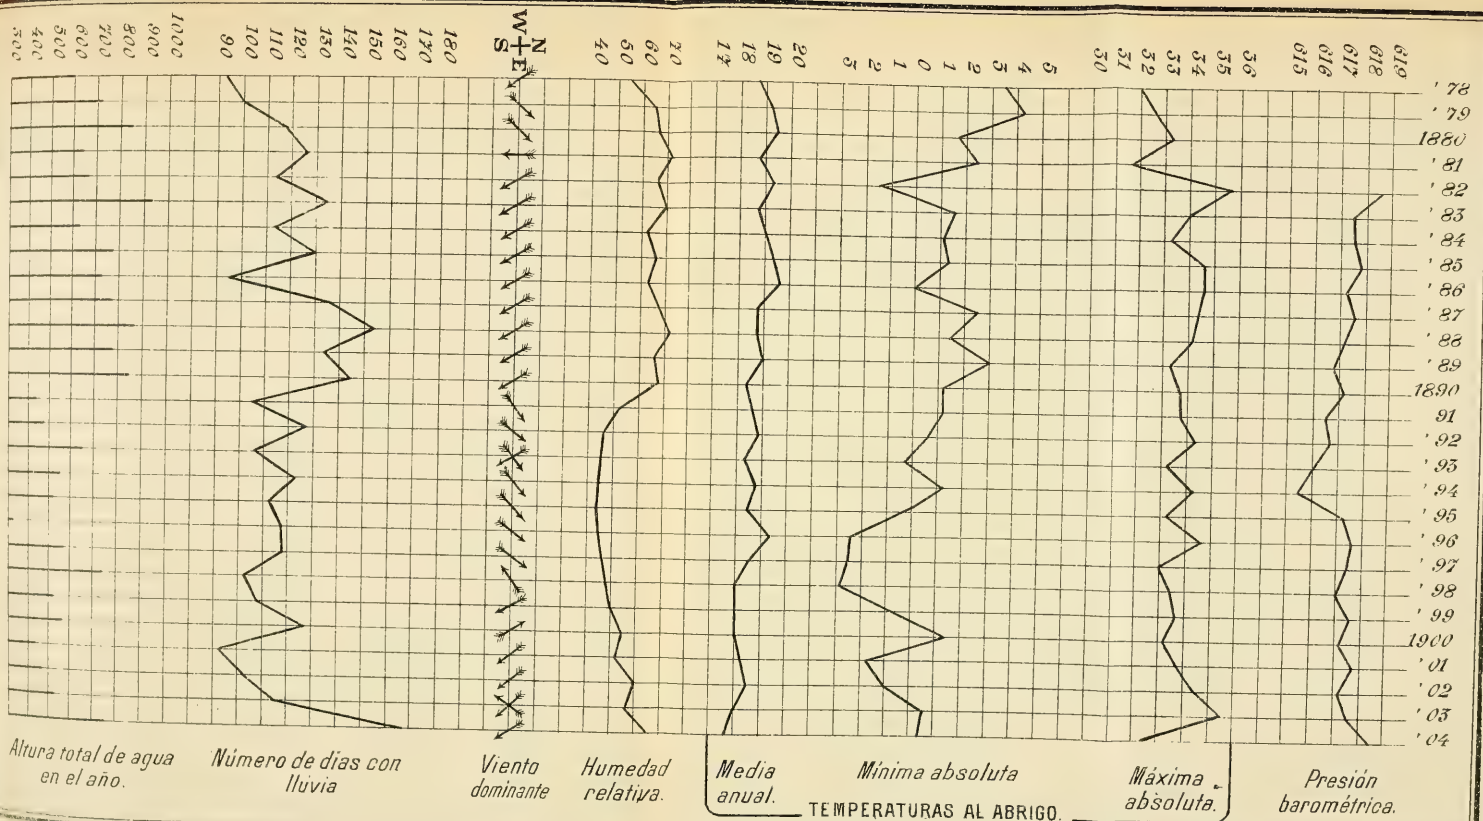 300 400 500 600 700 800 900 1000
90 100 110 120 130 140 150 160 170 180
N
W E
S
40 50 60 70
17 18 19 20
3 2 1 0 1 2 3 4 5
30 31 32 33 34 35 36
615 616 617 618 619
' 78
' 79
1880
' 81
' 82
' 83
' 84
' 85
' 86
' 87
' 88
' 89
1890
91
' 92
' 93
' 94
' 95
' 96
' 97
' 98
' 99
1900
' 01
' 02
' 03
' 04
Altura total de agua
en el año.
Número de días con
lluvia
Viento
dominante
Humedad
relativa.
Media
anual.
Mínima absoluta
Máxima
absoluta.
TEMPERATURAS AL ABRIGO.
Presión
barométrica.